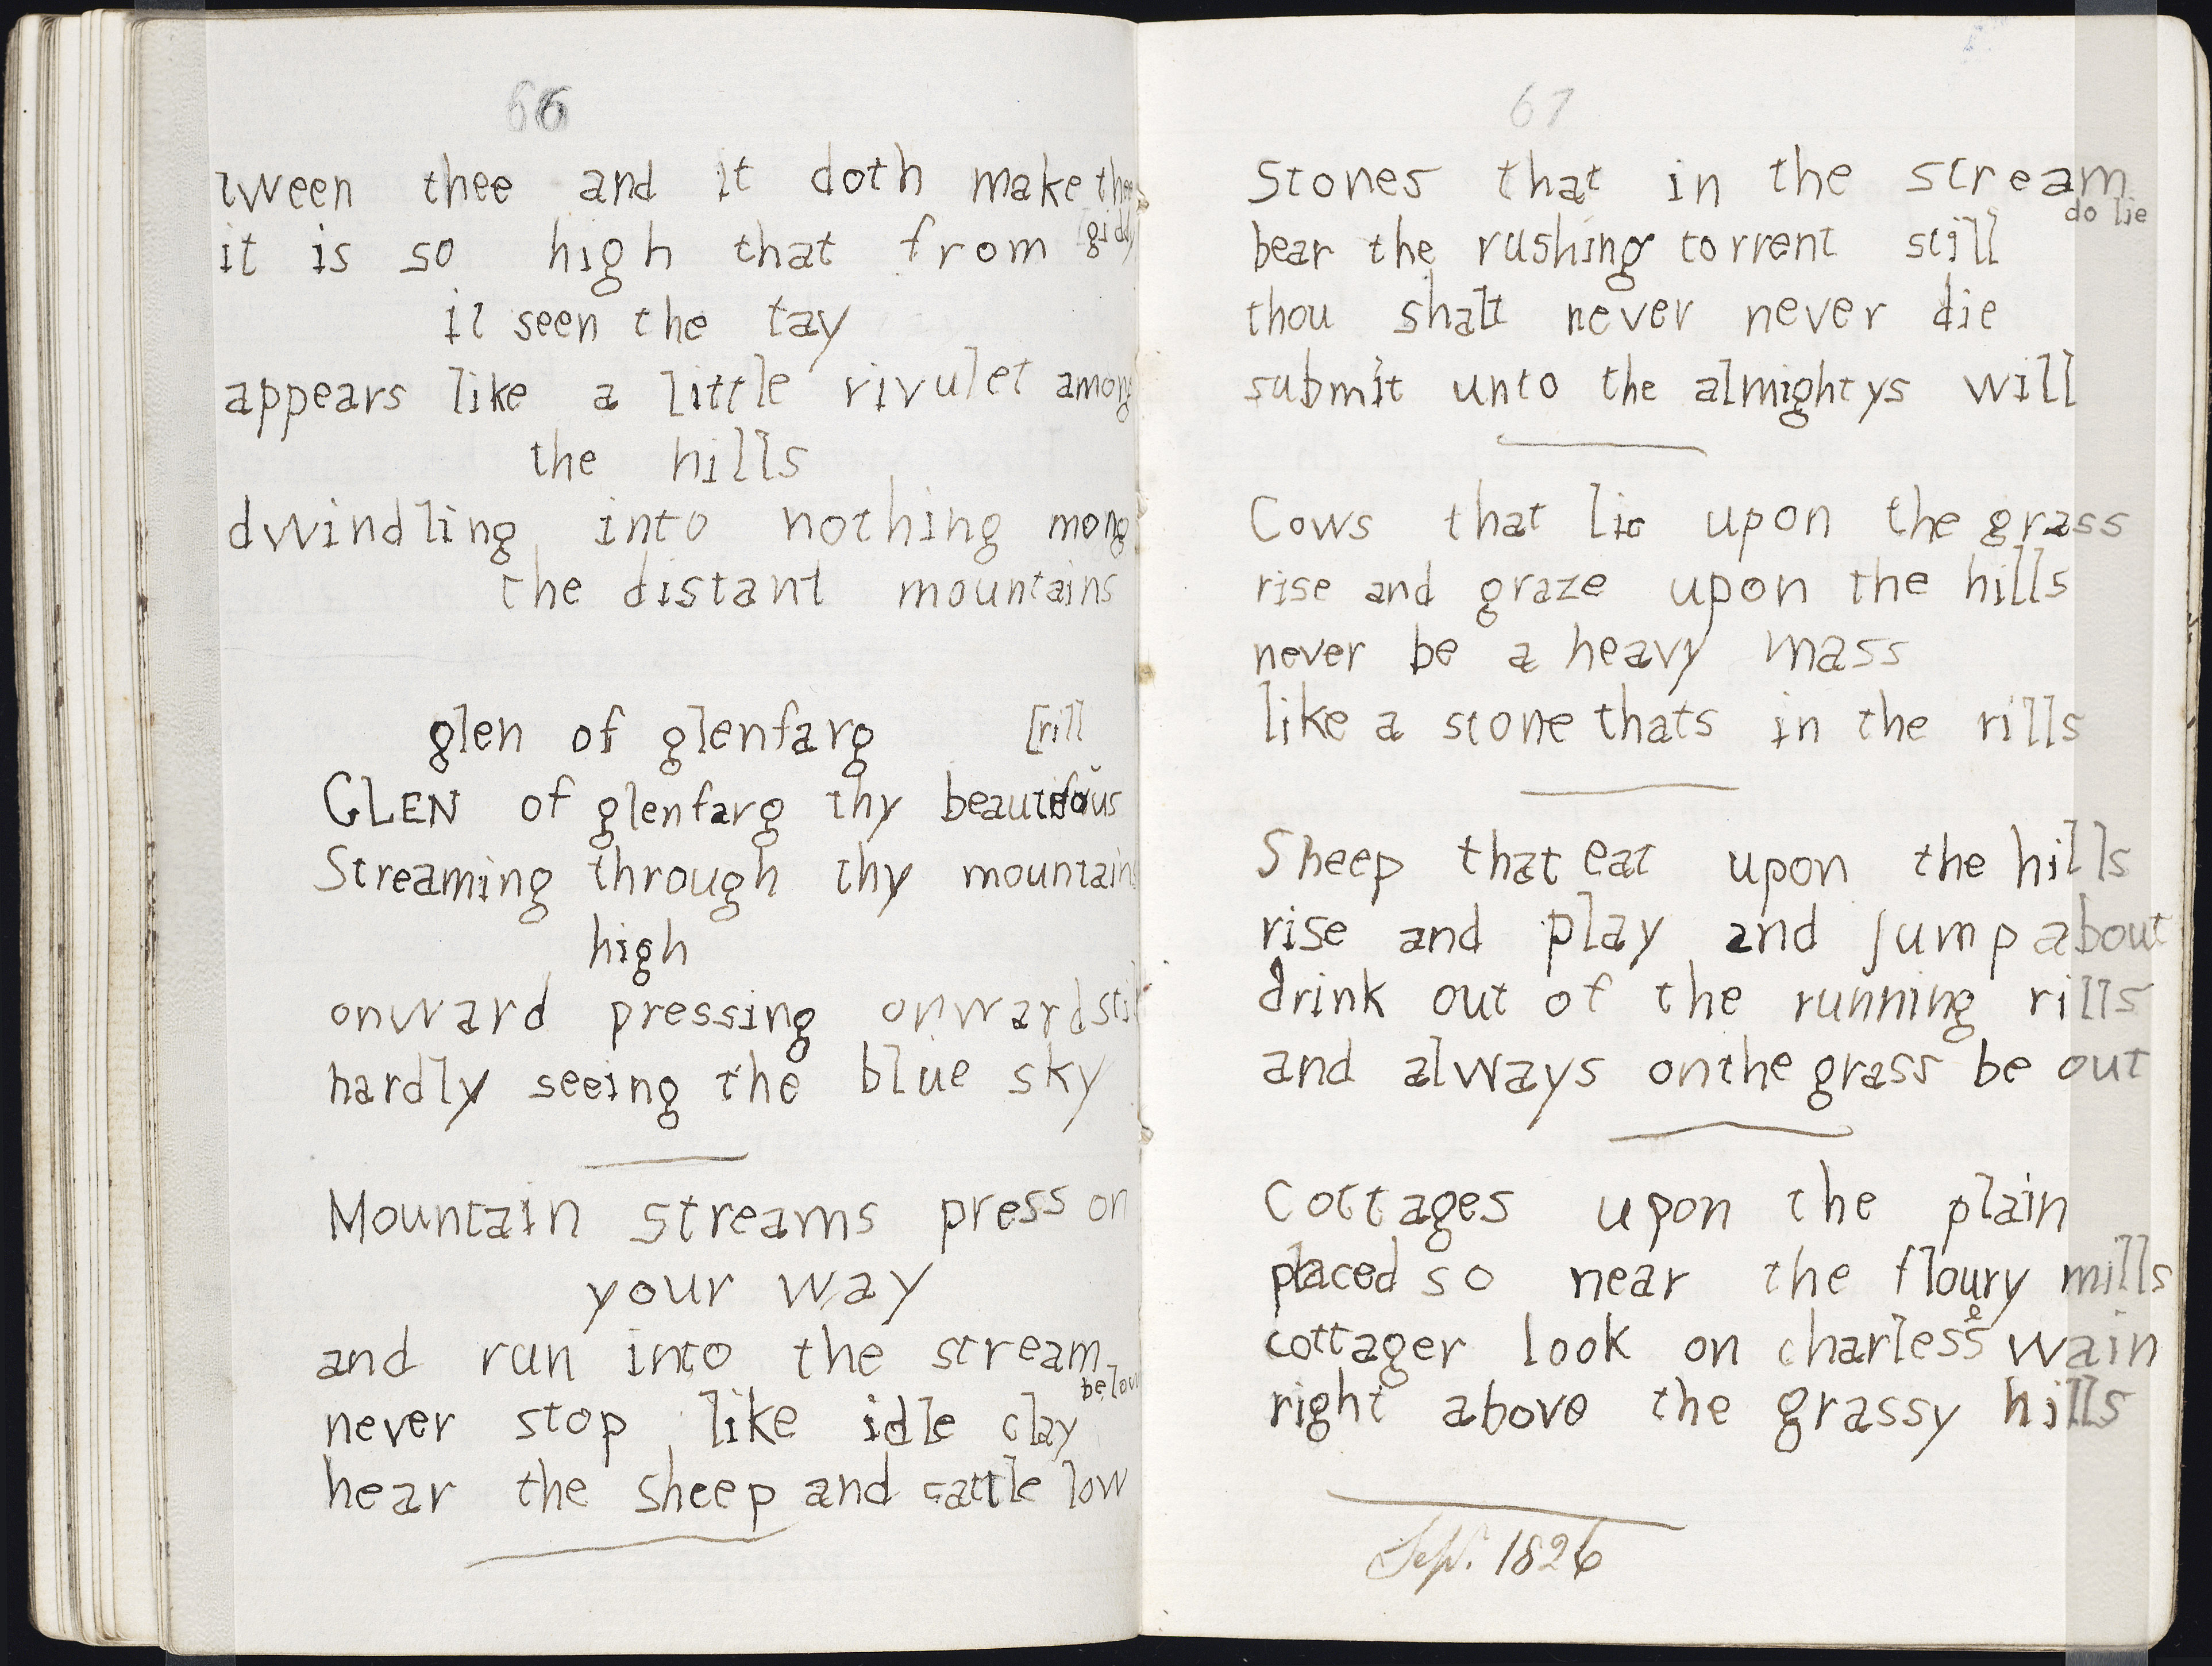 66
tween thee and it doth make thee
[giddy
it is so high that from
it seen the tay
appears like a little rivulet among
the hills
dwindling into nothing mong
the distant mountains
glen of glenfarg
[rill
GLEN of glenfarg thy beauteous
Streaming through thy mountains
high
onward pressing onward still
hardly seeing the blue sky
Mountain streams press on
your way
and run into the stream
below
never stop like idle clay
hear the sheep and cattle low
67
Stones that in the stream
do lie
bear the rushing torrent still
thou shalt never never die
submit unto the almightys will
Cows that lie upon the grass
rise and graze upon the hills
never be a heavy mass
like a stone thats in the rills
Sheep that eat upon the hills
rise and play and jump about
drink out of the running rills
and always on the grass be out
Cottages upon the plain
placed so near the floury mills
cottager look on charless wain
right above the grassy hills
Sept. 1826